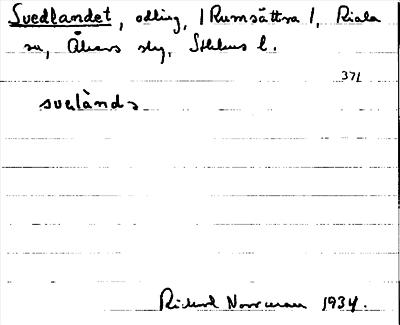 Svedlandet, odling, /Rumsättra/, Riala
sn, Åkers skg, Sthlms l.
371
svεlànd
Rickard Norrman 1934.